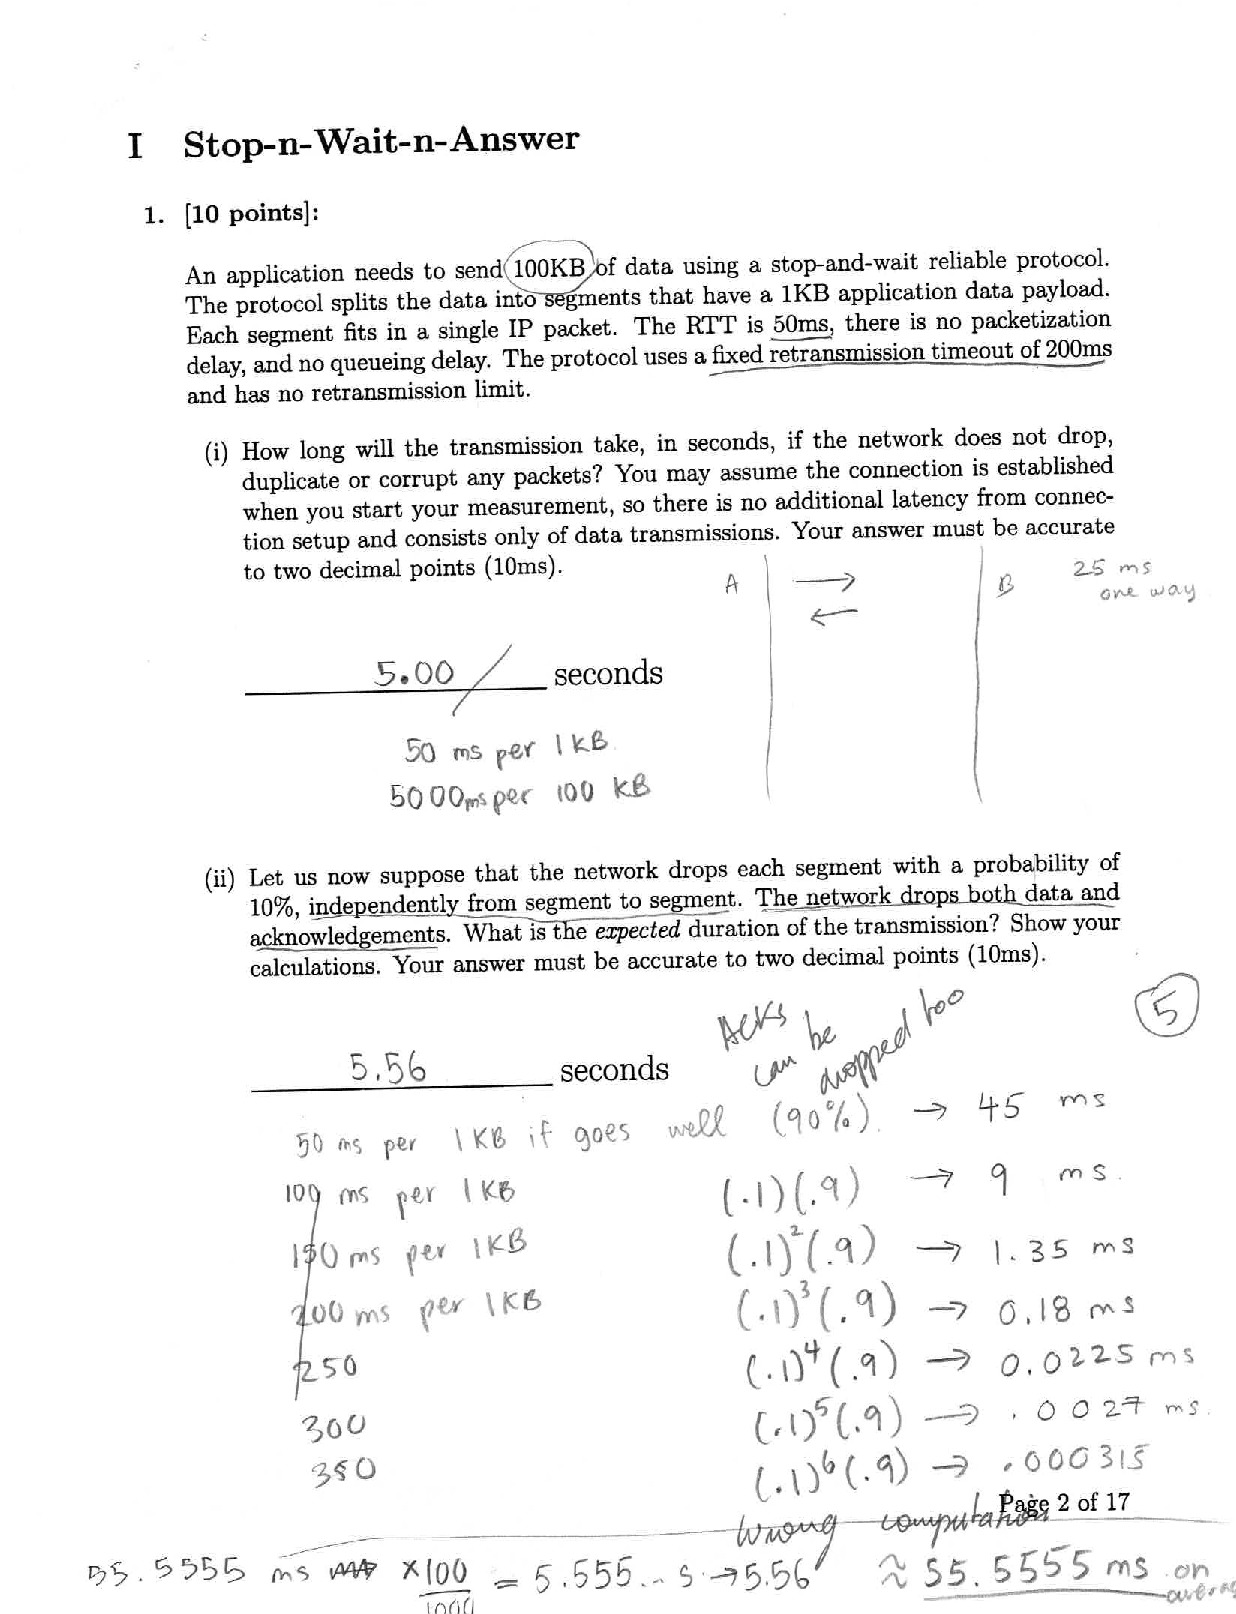 I Stop-n-Wait-n-Answer
1. [10 points]:
An application needs to send 100KB of data using a stop-and-wait reliable protocol.
The protocol splits the data into segments that have a 1KB application data payload.
Each segment fits in a single IP packet. The RTT is 50ms, there is no packetization
delay, and no queueing delay. The protocol uses a fixed retransmission timeout of 200ms
and has no retransmission limit.
(i) How long will the transmission take, in seconds, if the network does not drop,
duplicate or corrupt any packets? You may assume the connection is established
when you start your measurement, so there is no additional latency from connec-
tion setup and consists only of data transmissions. Your answer must be accurate
to two decimal points (10ms).
A → B 25 ms
← one way
5.00 / seconds
50 ms per 1KB
5000ms per 100 KB
(ii) Let us now suppose that the network drops each segment with a probability of
10%, independently from segment to segment. The network drops both data and
acknowledgements. What is the expected duration of the transmission? Show your
calculations. Your answer must be accurate to two decimal points (10ms).
5
Acks
can be
dropped too
5.56 seconds
50 ms per 1KB if goes well (90%). → 45 ms
100 ms per 1KB (.1)(.9) → 9 ms.
150 ms per 1KB (.1)²(.9) → 1.35 ms
200 ms per 1KB (.1)³(.9) → 0.18 ms
250 (.1)⁴(.9) → 0.0225 ms
300 (.1)⁵(.9) → .0027 ms.
350 (.1)⁶(.9) → .000315
Page 2 of 17
wrong computation
55.5555 ms ×100/1000 = 5.555... s → 5.56 ≈ 55.5555 ms on
average